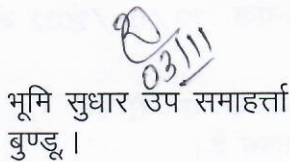 03/11
भूमि सुधार उप समाहर्त्ता
बुण्डू।